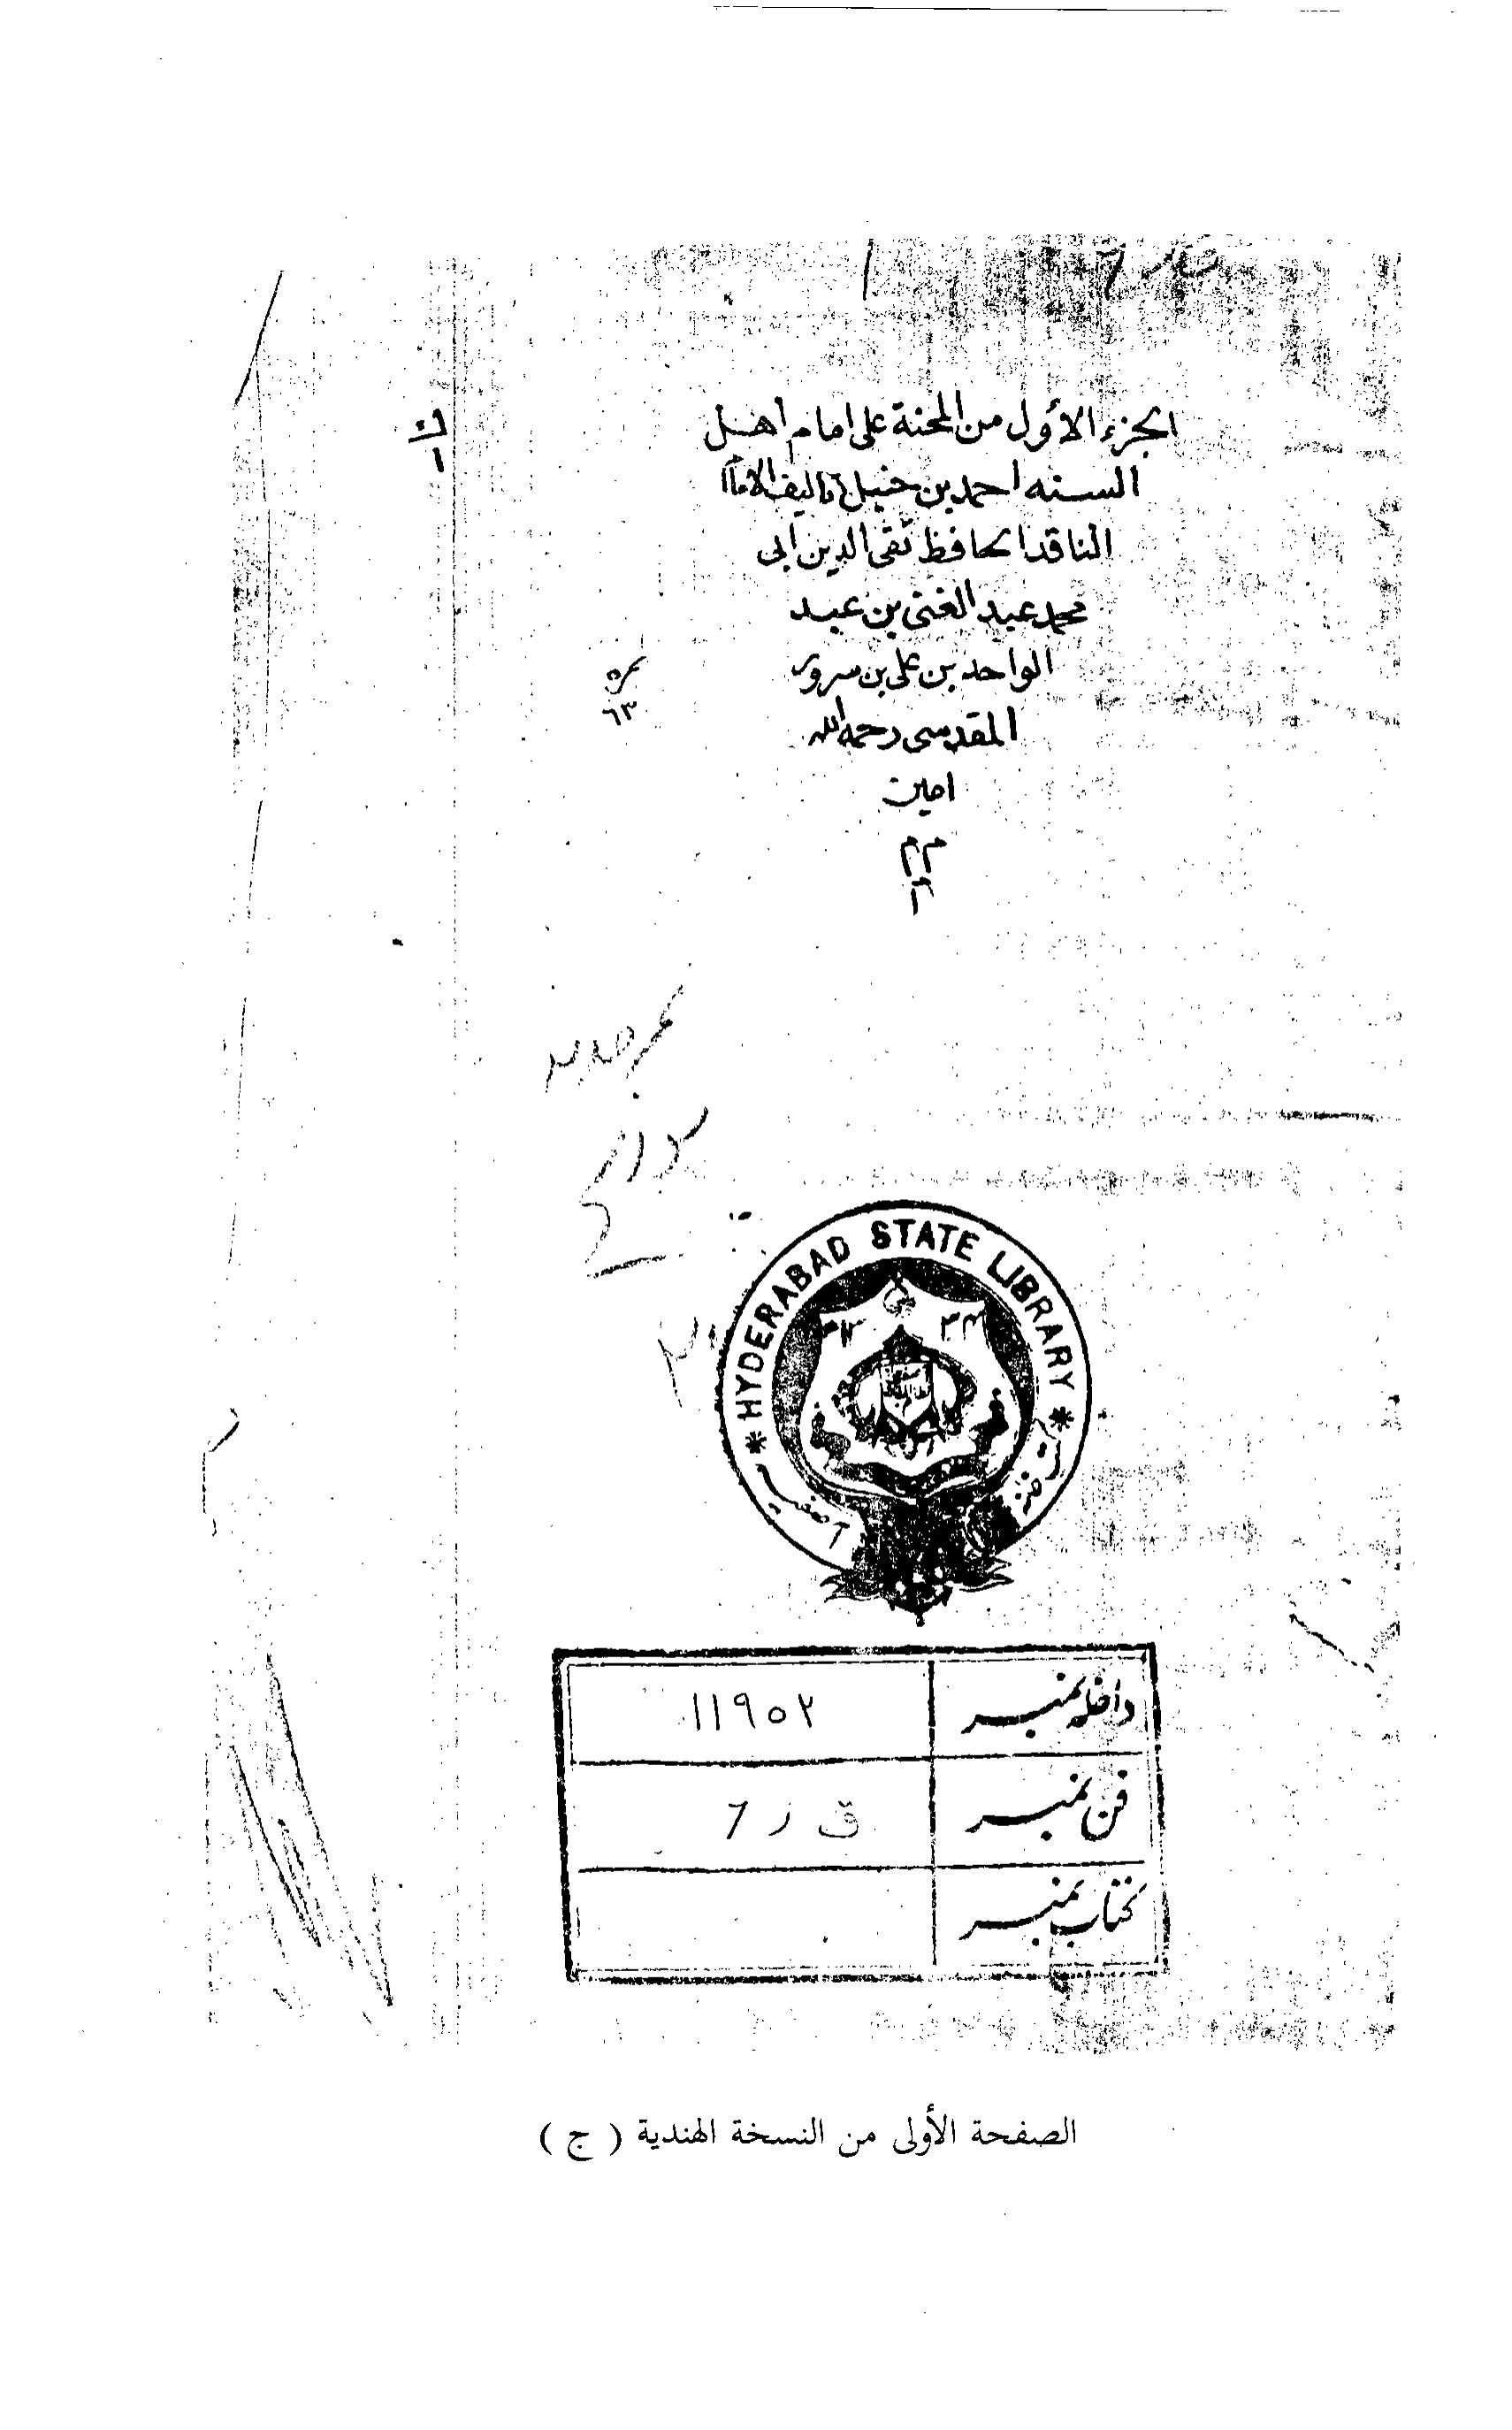 الجزء الأول من المحنة على امام أهل
السنه احمد بن حنبل تاليف الامام
الناقد الحافظ تقي الدين ابى
محمد عبد الغنى بن عبد
الواحد بن على بن سرور
المقدسى رحمه الله
امين
نمره
٦٣
نمبر جدید
HYDERABAD STATE LIBRARY
داخله نمبر ١١٩٥٢
فن نمبر ق ر ٦
کتاب نمبر
الصفحة الأولى من النسخة الهندية ( ج )